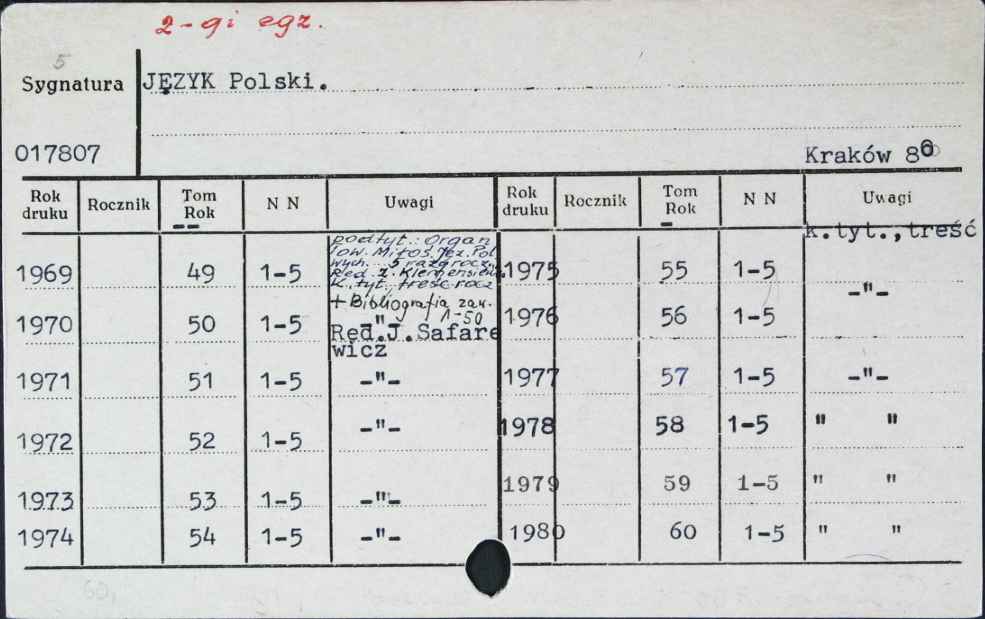 2-gi egz.
5
Sygnatura JĘZYK Polski.
017807 Kraków 8
Rok druku Rocznik Tom Rok N N Uwagi Rok druku Rocznik Tom Rok N N Uwagi
k.tyt.,treść
podtyt.: Organ
Tow. Miłoś. Jęz. Pol
wych. 5 razy rocz.
Red. Z. Klemensiewicz
k. tyt., treść rocz
1969 49 1-5 1975 55 1-5
+ Bibliografia zaw. 1-50
-"-
1970 50 1-5 " 1976 56 1-5
Red.J.Safare
wicz
1971 51 1-5 -"- 1977 57 1-5 -"-
1972 52 1-5 -"- 1978 58 1-5 " "
1973 53 1-5 -"- 1979 59 1-5 " "
1974 54 1-5 -"- 1980 60 1-5 " "
60,